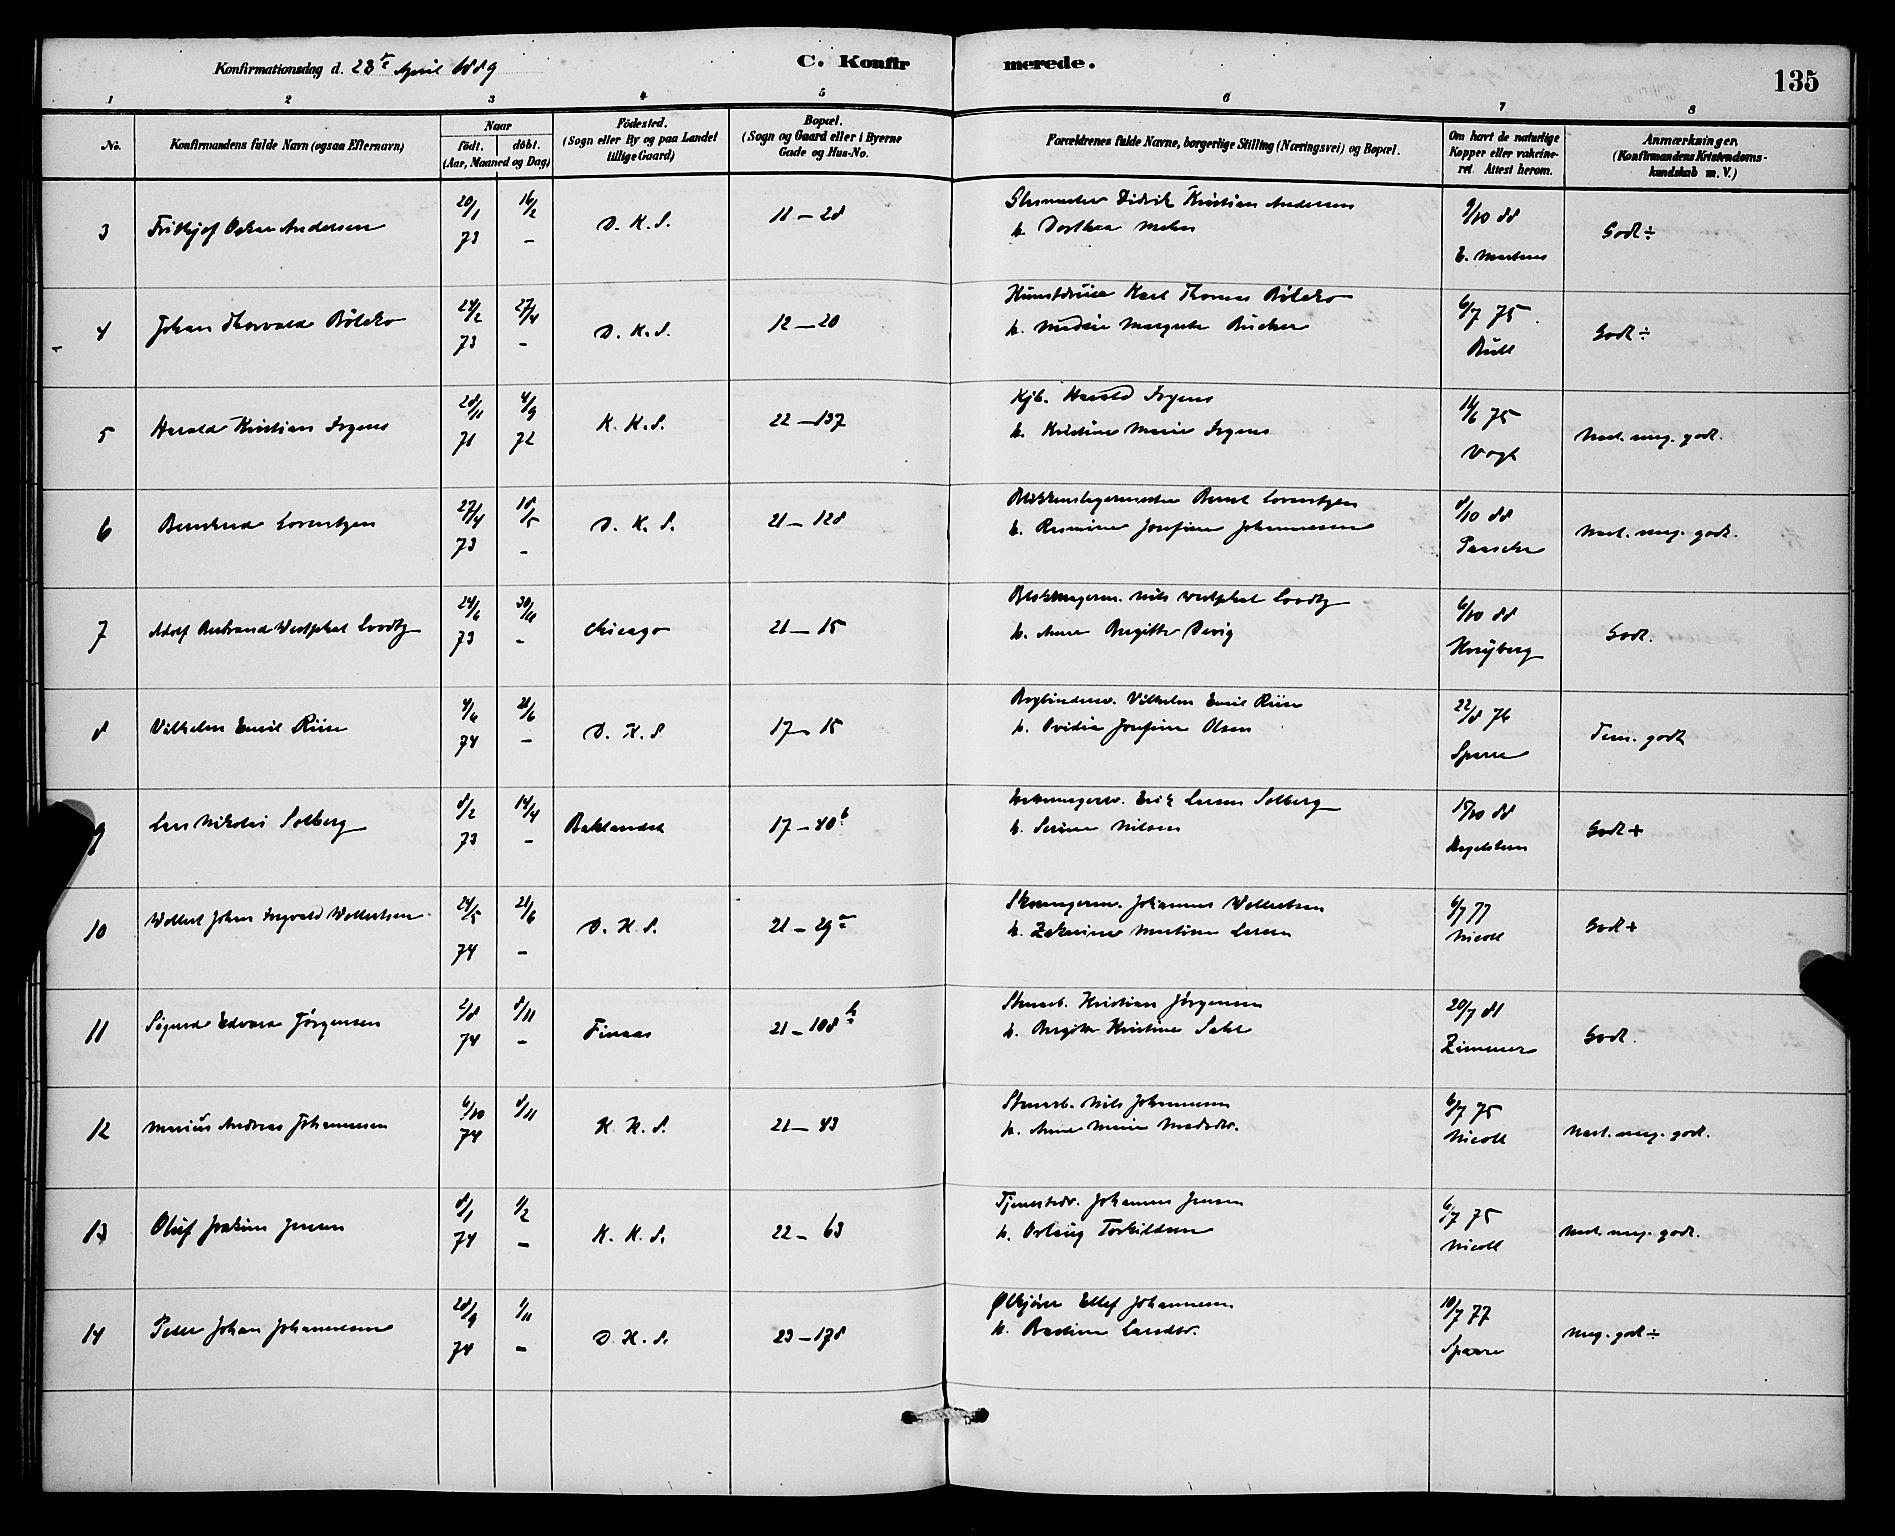 Konfirmationsdag d. 28de April 1889
C. Konfirmerede.
135
1 2 3 4 5 6 7 8
No. Konfirmandens fulde Navn (ogsaa Efternavn) Naar födt. döbt. (Aar, Maaned og Dag) Födested. (Sogn eller By og paa Landet tillige Gaard) Bopæl. (Sogn og Gaard eller i Byerne Gade og Hus-No. Forældrenes fulde Navne, borgerlige Stilling (Næringsvei) og Bopæl. Om havt de naturlige Kopper eller vakcineret. Attest herom. Anmærkninger. (Konfirmandens Kristendomskundskab m. V.)
20/1 16/2 Didrik Kristian Andersen 9/10 88
3 Frithjof Oskar Andersen D. K. S. 11 – 28 h. Dorthea Godt ÷
73 – E. Mertens
24/2 27/4 Karl Thomas 6/7 75
4 Johan Thorvald D. K. S. 12 – 20 h. Margrethe Godt ÷
73 – Bull
28/11 4/9 Kjb. Harald Irgens 14/6 75
5 Harald Kristian Irgens K. K. S. 22 – 137 h. Kristine Marie Irgens Næst. meg. godt.
71 72 Vogt
27/4 18/5 Blikkenslagermester Bernt Lorentzen 8/10 88
6 Bernhard Lorentzen D. K. S. 21 – 128 h. Rasmine Josefine Johannessen Næst. meg. godt.
73 – Paasche
24/6 30/11 Nils Westphal Loodtz 6/10 88
7 Adolf Bertrand Westphal Loodtz Chicago 21 – 15 h. Anne Birgitte Devig Godt.
73 –
4/4 21/6 Bogbinderm. Vilhelm Emil Riise 22/8 76
8 Vilhelm Emil Riise D. K. S 17 – 15 h. Ovidia Josefine Olsen Tem. godt
74 – Sparre
8/2 14/4 Erik Larsen Solberg 15/10 88
9 Lars Nikolai Solberg Baklandet 17 – 40b h. Serine Nilsen Godt +
73 –
24/5 21/6 Skomagerm. Johannes Wollertsen 6/7 77
10 Wollert Johan Ingvald Wollertsen D. K. S. 21 – 29a h. Zakarine Martine Larsen Godt +
74 – Nicoll
2/8 8/11 Kristian Jörgensen 20/7 81
11 Sigurd Edvard Jörgensen Finaas 21 – 108b h. Birgitte Kristine Godt.
74 – Zimmer
6/10 8/11 Nils Johannesen 6/7 75
12 Marius Andreas Johannesen K. K. S. 21 – 43 h. Anne Marie Madsdtr. Næst. meg. godt.
74 Nicoll
8/1 1/2 Johannes Jensen 6/7 75
13 Oluf Joakim Jensen K. K. S. 22 – 63 h. Torkildsen Næst. meg. godt.
74 – Nicoll
28/9 1/11 Ølkjörer Ellef Johannesen 10/7 77
14 Peder Johan Johannesen D. K. S. 23 – 178 h. Meg. godt ÷
74 – Sparre